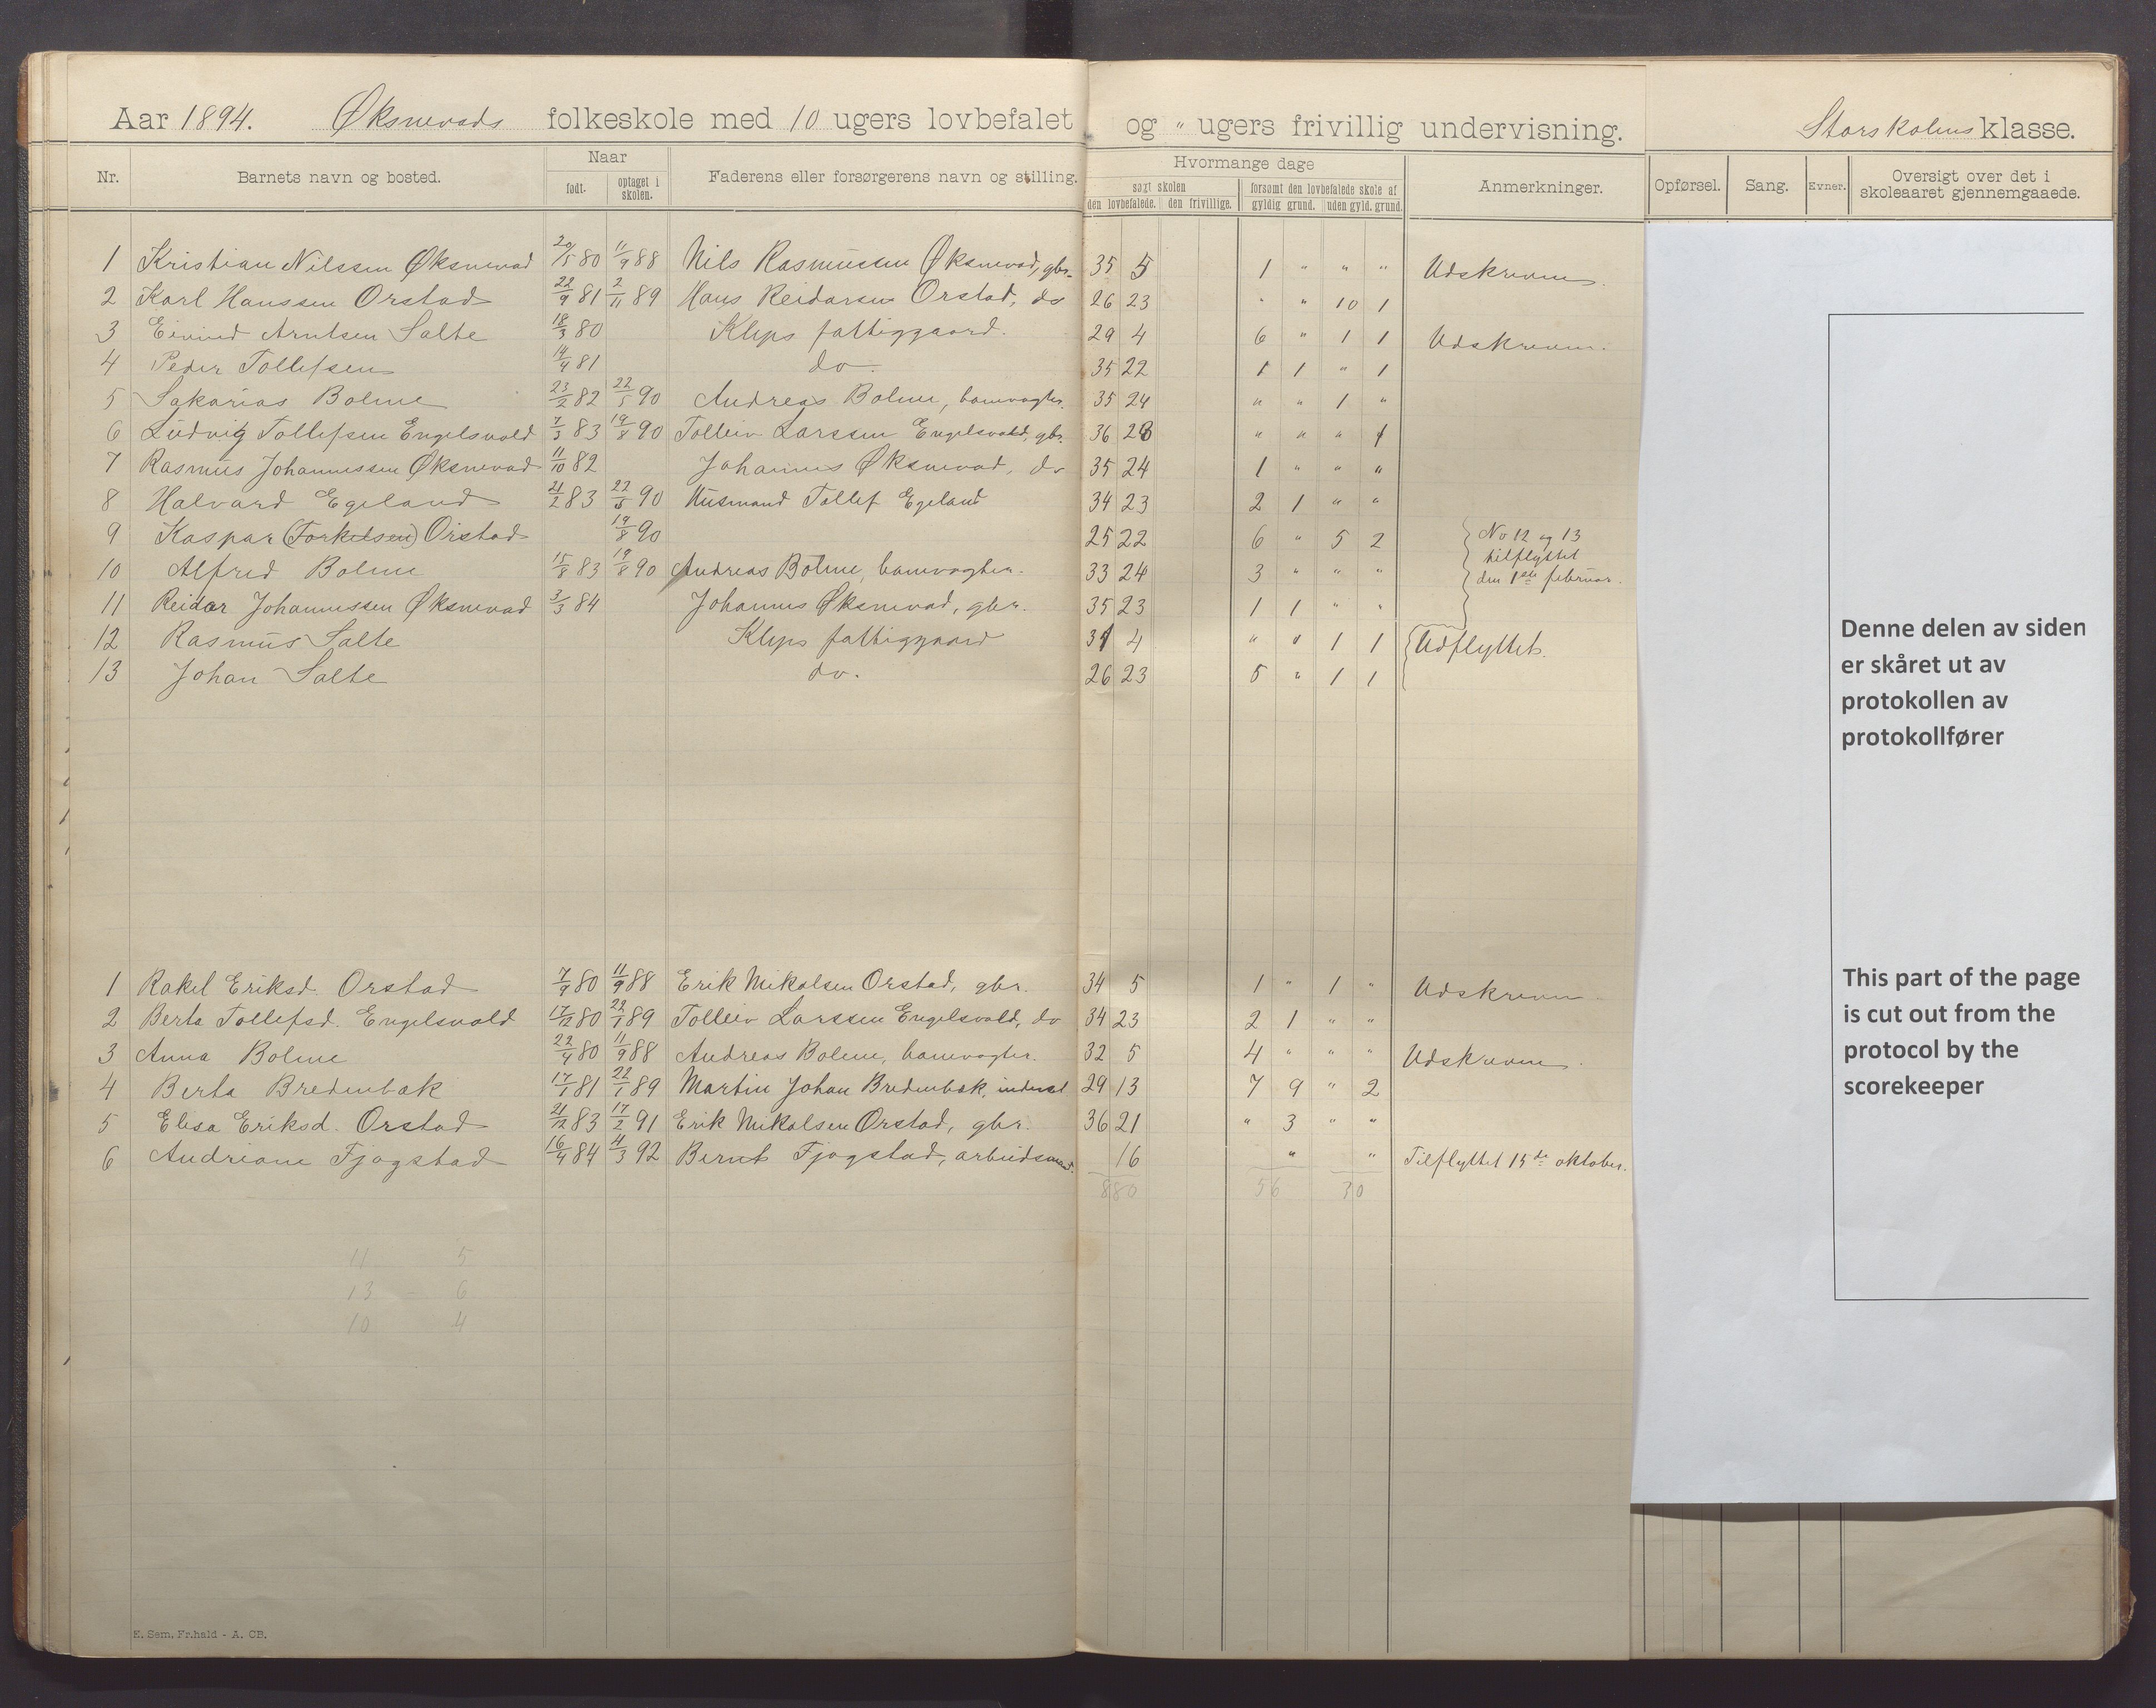 Aar 1894. Øksnevads folkeskole med 10 ugers lovbefalet og " ugers frivillig undervisning. Storskolens klasse.
Nr. Barnets navn og bosted. Naar Faderens eller forsørgerens navn og stilling. Hvormange dage Anmerkninger. Opførsel. Sang. Evner. Oversigt over det i skoleaaret gjennemgaaede.
født. optaget i skolen. søgt skolen forsømt den lovbefalede skole af
den lovbefalede. den frivillige. gyldig grund. uden gyld. grund.
1 Kristian Nilssen Øksnevad 20/5 80 11/9 88 Nils Rasmussen Øksnevad, gbr. 35 5 1 " " " Udskreven.
2 Karl Hanssen Orstad 22/9 81 2/11 89 Hans Reidarsen Orstad, do 26 23 " " 10 1
3 Eivind Arntsen Salte 18/3 80 Kleps fattiggaard. 29 4 6 " 1 1 Udskreven.
4 Peder Tollefsen 14/4 81 do. 35 22 1 1 " 1
5 Sakarias Bolme 23/2 82 22/5 90 Andreas Bolme, banevogter. 35 24 " " 1 "
6 Ludvig Tollefsen Engelsvold 7/3 83 19/8 90 Tolleiv Larssen Engelsvold, gbr. 36 23 " " " 1
7 Rasmus Johannessen Øksnevad 11/10 82 Johannes Øksnevad, do 35 24 1 " " "
8 Halvard Egeland 21/2 83 22/5 90 Husmand Tollef Egeland 34 23 2 1 " "
9 Kaspar (Torkelsen) Orstad 19/8 90 25 22 6 " 5 2 No 12 og 13
tilflyttet
10 Alfred Bolme 15/8 83 19/8 90 Andreas Bolme, banevogter. 33 24 3 " " " den 1ste februar.
11 Reidar Johannessen Øksnevad 3/3 84 Johannes Øksnevad, gbr. 35 23 1 1 " "
12 Rasmus Salte Kleps fattiggaard 31 4 " " 1 1 Udflyttet.
13 Johan Salte do. 26 23 5 " 1 1
1 Rakel Eriksd. Orstad 7/9 80 11/9 88 Erik Mikalsen Orstad, gbr. 34 5 1 " 1 " Udskreven.
2 Berta Tollefsd. Engelsvold 17/12 80 22/1 89 Tolleiv Larssen Engelsvold, do 34 23 2 1 " "
3 Anna Bolme 22/4 80 11/9 88 Andreas Bolme, banevogter. 32 5 4 " " " Udskreven.
4 Berta Bredenbak 17/1 81 22/1 89 Martin Johan Bredenbak, inderst 29 13 7 9 " 2
5 Elisa Eriksd. Orstad 21/12 83 17/2 91 Erik Mikalsen Orstad, gbr. 36 21 " 3 " "
6 Andriane Fjogstad 16/4 84 4/3 92 Bernt Fjogstad, arbeidsmand. 16 " " Tilflyttet 15de oktober.
880 56 30
11 5
13 - 6
10 4
E. Sem, Fr.hald - A. CB.
Denne delen av siden
er skåret ut av
protokollen av
protokollfører
This part of the page
is cut out from the
protocol by the
scorekeeper